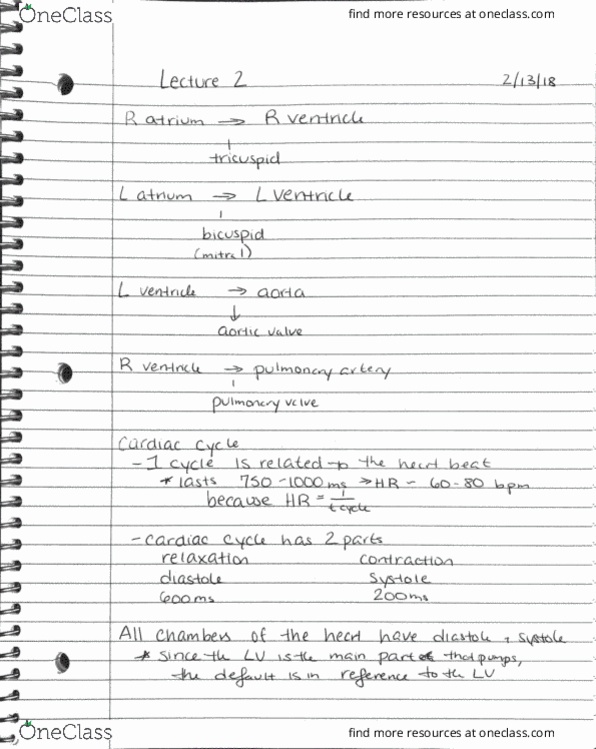 OneClass
find more resources at oneclass.com
Lecture 2 2/13/18
R atrium → R ventricle
tricuspid
L atrium → L ventricle
bicuspid
(mitral)
L ventricle → aorta
↓
aortic valve
R ventricle → pulmonary artery
pulmonary valve
Cardiac cycle
- 1 cycle is related to the heart beat
* lasts 750-1000ms → HR - 60-80 bpm
because HR = 1/t cycle
- cardiac cycle has 2 parts
relaxation contraction
diastole systole
600ms 200ms
All chambers of the heart have diastole + systole
* since the LV is the main part that pumps,
the default is in reference to the LV
OneClass
find more resources at oneclass.com